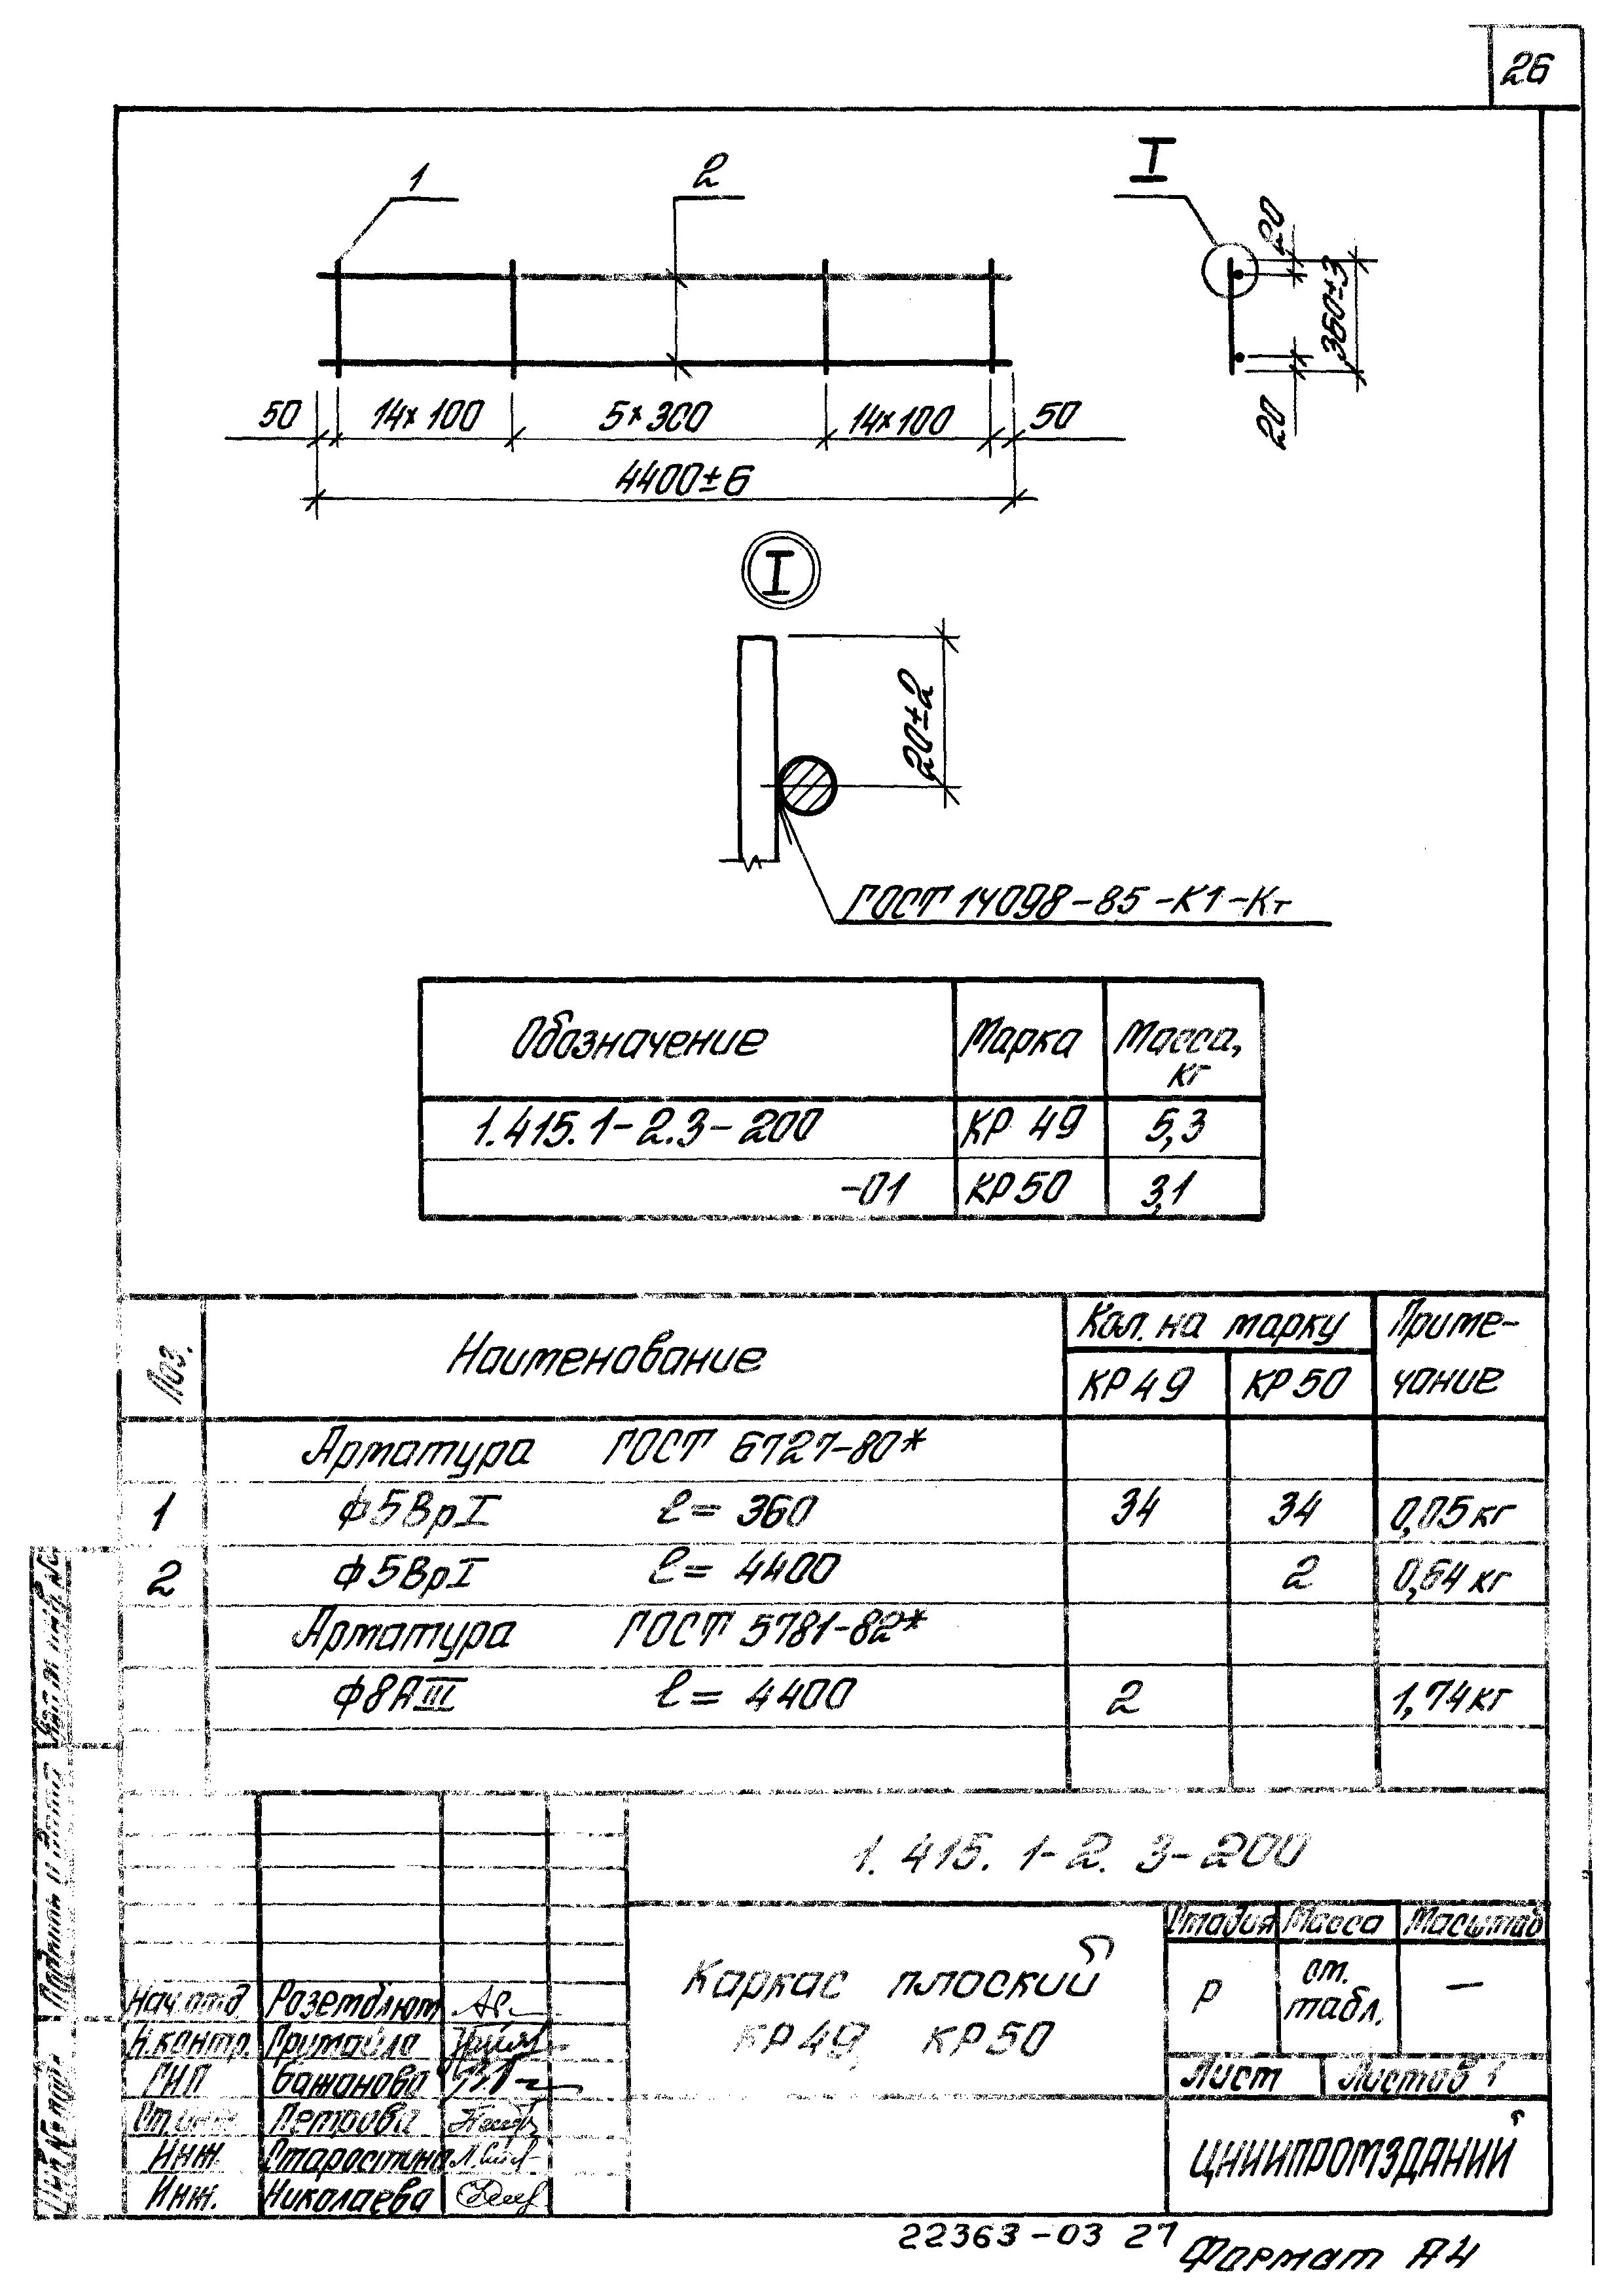 26
1
2
I
20
360±3
20
50 14×100 5×300 14×100 50
4400±6
I
20±2
ГОСТ 14098-85-К1-Кт
Обозначение Марка Масса, кг
1.415.1-2.3-200 КР 49 5,3
-01 КР50 3,1
Поз. Наименование Кол. на марку Приме-
КР49 КР50 чание
Арматура ГОСТ 6727-80*
1 ф5ВрI ℓ= 360 34 34 0,05 кг
2 ф5ВрI ℓ= 4400 2 0,64 кг
Арматура ГОСТ 5781-82*
ф8АIII ℓ= 4400 2 1,74 кг
1.415.1-2.3-200
Каркас плоский
КР49, КР50
Стадия Масса Масштаб
Р см. табл. —
Лист Листов 1
Нач.отд. Розенблют
Н.контр. Примайло
ГИП Бажанова
Ст.инж. Петрова
Инж. Старостина
Инж. Николаева
ЦНИИПРОМЗДАНИЙ
Инв.№ подл.
Подпись и дата
22363-03 27
Формат А4